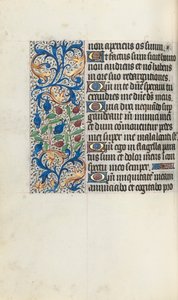 non aperiens os suum
Et factus sum sicut homo
non audiens et non habens
in ore suo redargutiones
Qm in te dne speraui tu
exaudies me dne deus meus
Quia dixi nequando sup
gaudeant in inimici mei
et dum comouentur pedes
mei super me mala locuti st
Qm ego in flagella para
tus sum et dolor meus i con
spectu meo semper
Qm iniquitate meam
annuciabo et cogitabo pro